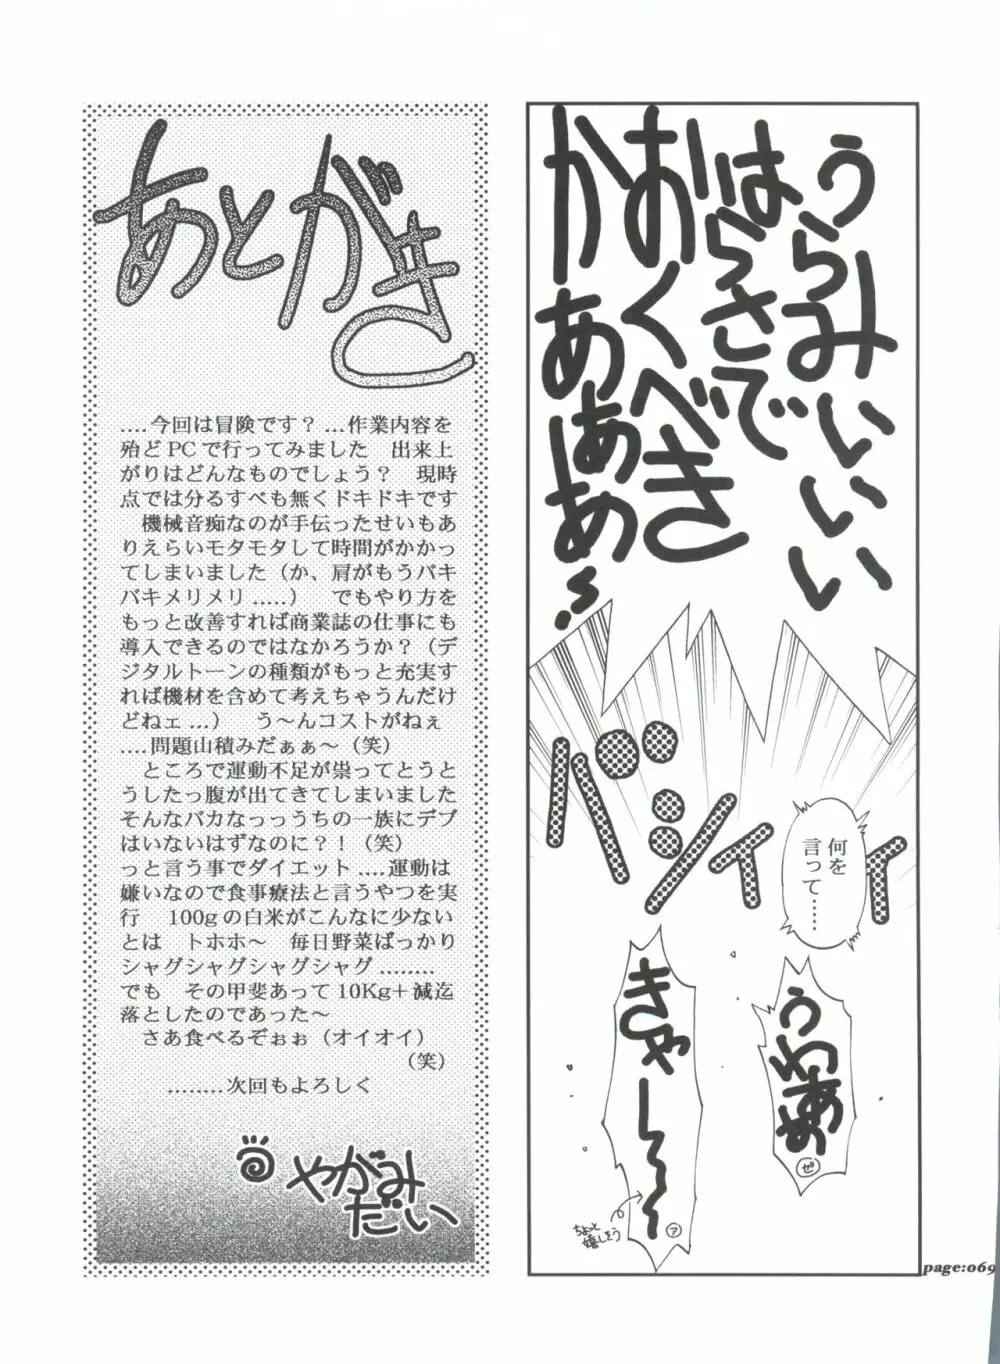 うらみいいい
はらさで
おくべき
かああああ！
バシィィィ
何を
言って……
うわああ
ゼ
きゃー～～～
ア
ちょっと
嬉しそう
page:069
あとがき
.....今回は冒険です？ …作業内容を
殆どPCで行ってみました　出来上
がりはどんなものでしょう？　現時
点では分るすべも無くドキドキです
　機械音痴なのが手伝ったせいもあ
りえらいモタモタして時間がかかっ
てしまいました（か、肩がもうバキ
バキメリメリ.....）　でもやり方を
もっと改善すれば商業誌の仕事にも
導入できるのではなかろうか？（デ
ジタルトーンの種類がもっと充実す
れば機材を含めて考えちゃうんだけ
どねェ…）　う〜んコストがねぇ
....問題山積みだぁぁ〜（笑）
　ところで運動不足が祟ってとうと
うしたっ腹が出てきてしまいました
そんなバカなっっうちの一族にデブ
はいないはずなのに？！（笑）
っと言う事でダイエット.....運動は
嫌いなので食事療法と言うやつを実
行　100gの白米がこんなに少ない
とは　トホホ〜　毎日野菜ばっかり
シャグシャグシャグシャグ........
でも　その甲斐あって10Kg＋減迄
落としたのであった〜
　さあ食べるぞぉぉ（オイオイ）
（笑）
........次回もよろしく
やがみ
だい